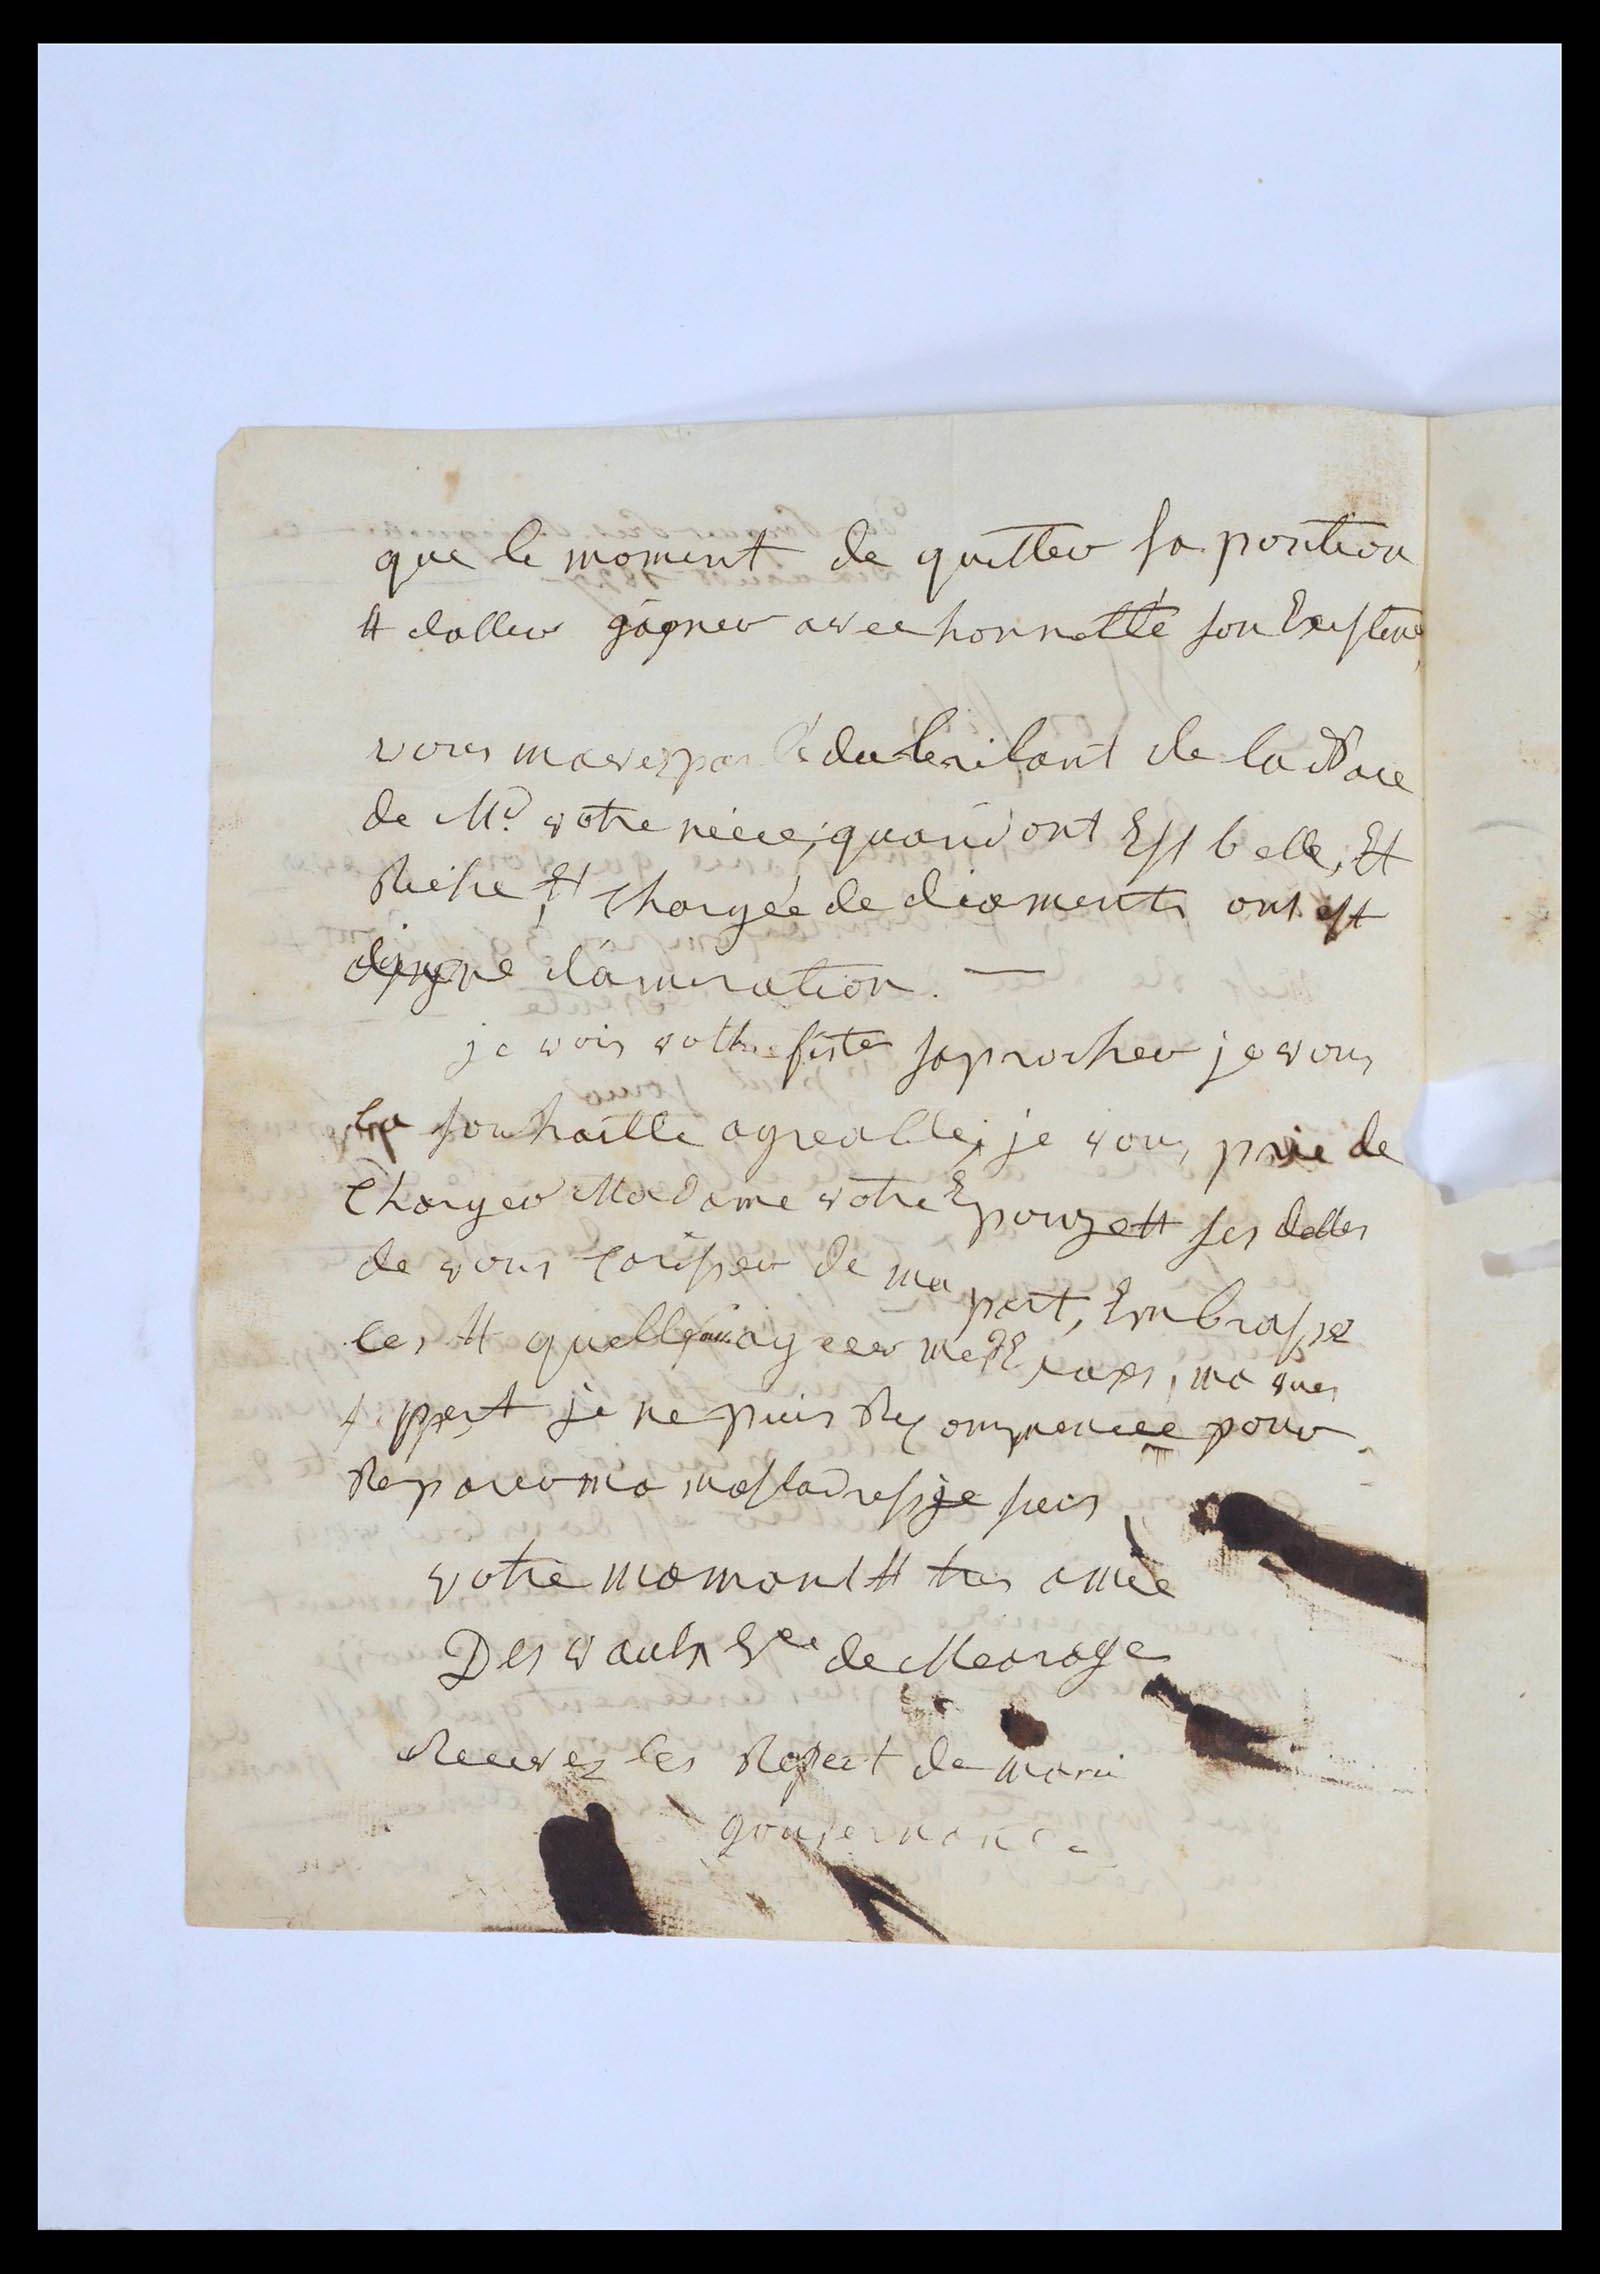 que le moment de quitter sa position
et daller gagner avec honnetté son Existence
vous mavez parlé du brilant de la Noce
de Md. votre niece, quand ont Est belle, Et
Riche Et Chargée de diaments ont est
digne damiration. —
je vois votre fête saprocher je vous
la souhaitte agreable, je vous prie de
Charger Madame votre Epouze et ses delles
de vous Carisser de ma part, Embrasse
les et quelle agreer mes Exuses, ma vues
je ne puis Recommencee pour
Reparer ma maladresse je suis
votre maman et tres amie
Desvaulx Vee de Mearage
Recevez les Respect de mami
gouvernance